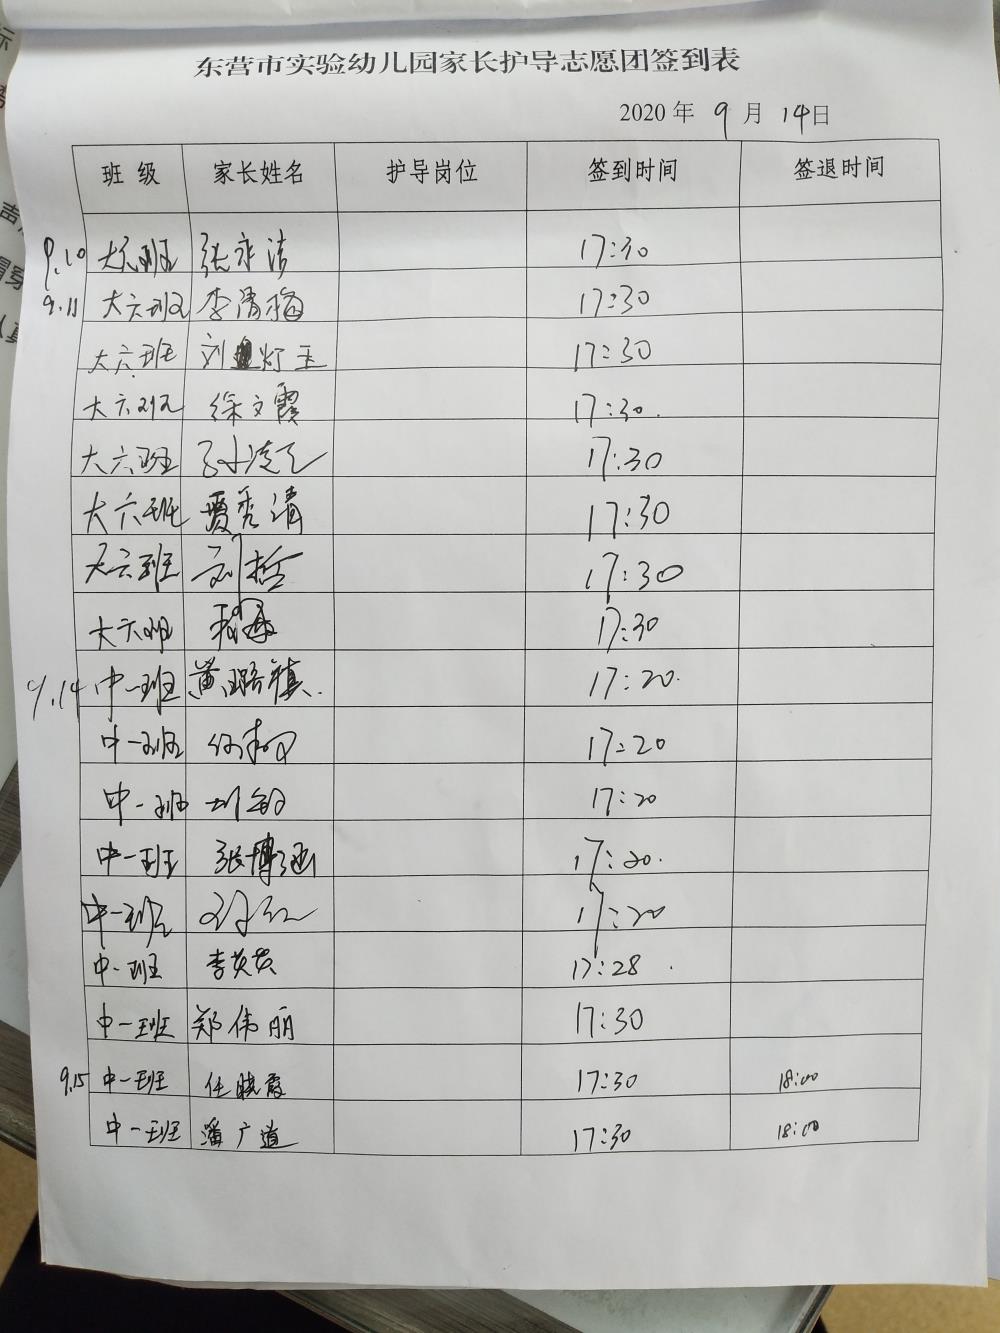 东营市实验幼儿园家长护导志愿团签到表
2020 年 9 月 14日
班 级 家长姓名 护导岗位 签到时间 签退时间
9.10 大六班 张永洁 17:30
9.11 大六班 李清梅 17:30
大六班 刘灯玉 17:30
大六班 徐文霞 17:30.
大六班 17:30
大六班 夏秀清 17:30
大六班 刘哲 17:30
大六班 17:30
9.14 中一班 黄璐禛. 17:20.
中一班 17:20
中一班 刘敏 17:20
中一班 张博涵 17:20.
中一班 17:20
中一班 李英英 17:28 .
中一班 郑伟丽 17:30
9.15 中一班 任晓霞 17:30 18:00
中一班 潘广道 17:30 18:00